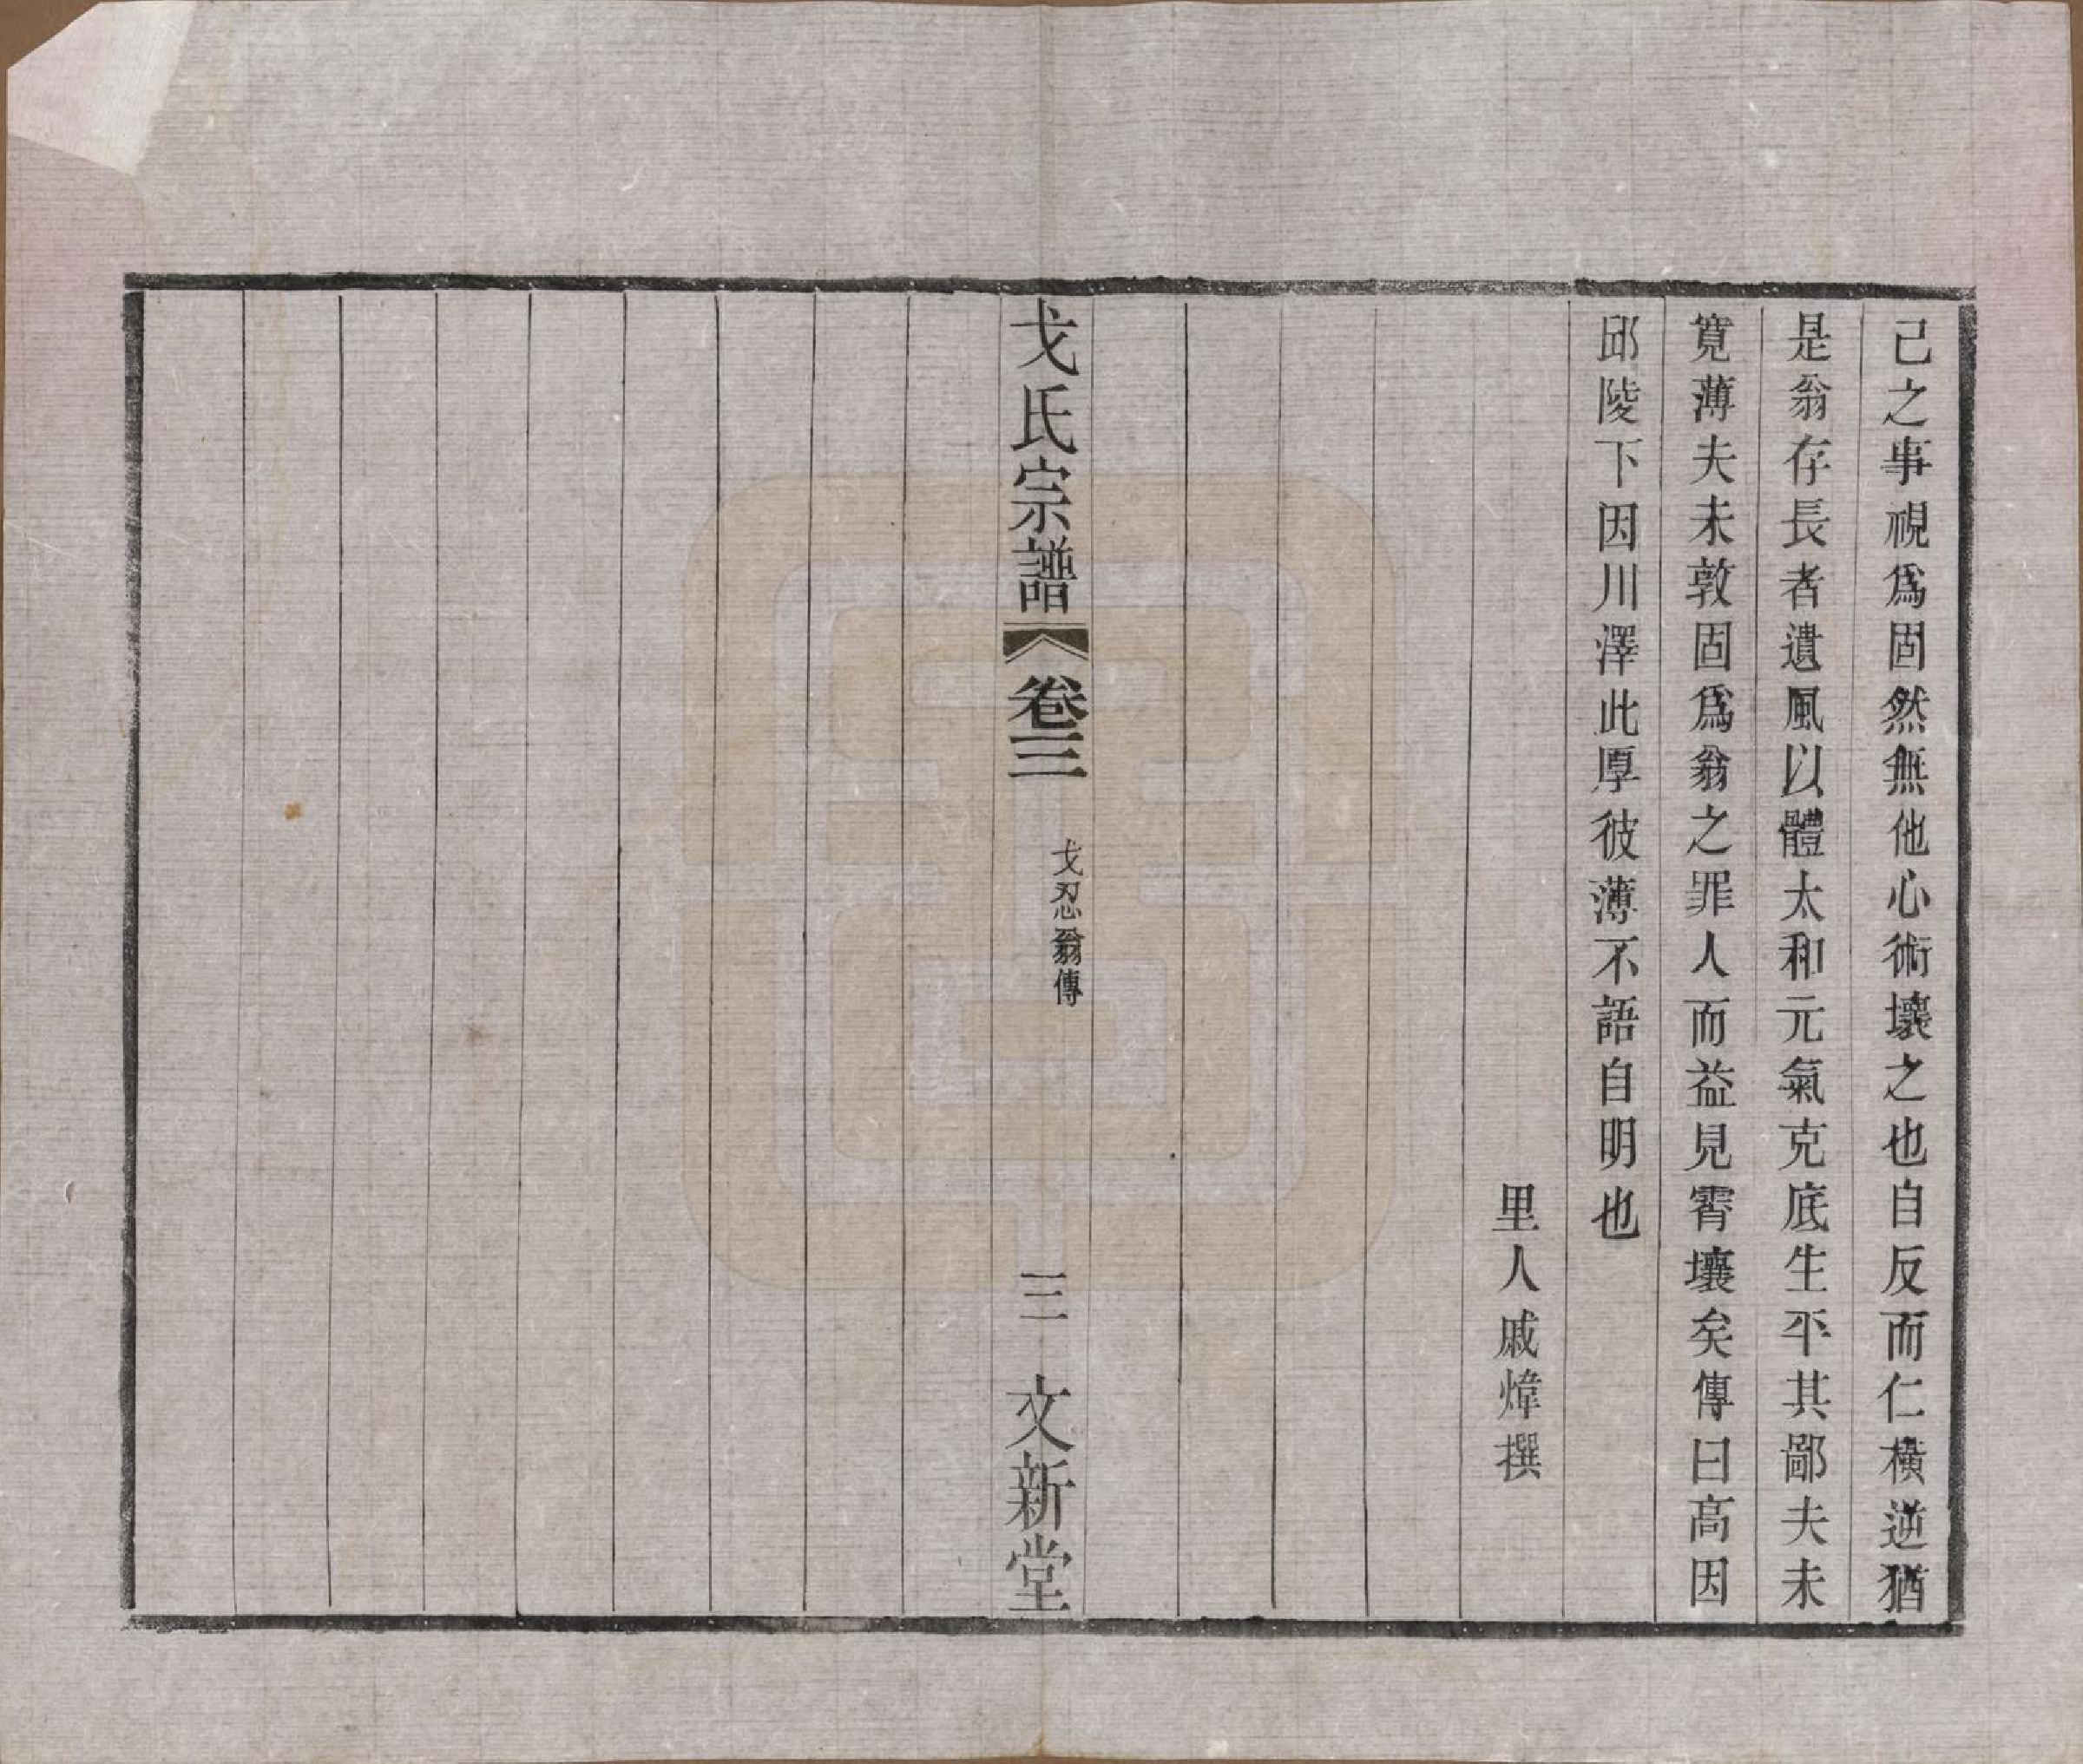 己之事視爲固然無他心術壞之也自反而仁橫逆猶
是翁存長者遺風以體太和元氣克底生平其鄙夫未
寛薄夫未敦固爲翁之罪人而益見霄壤矣傳曰高因
邱陵下因川澤此厚彼薄不語自明也
里人戚煒撰
戈氏宗譜
卷三
戈忍翁傳
三
文新堂